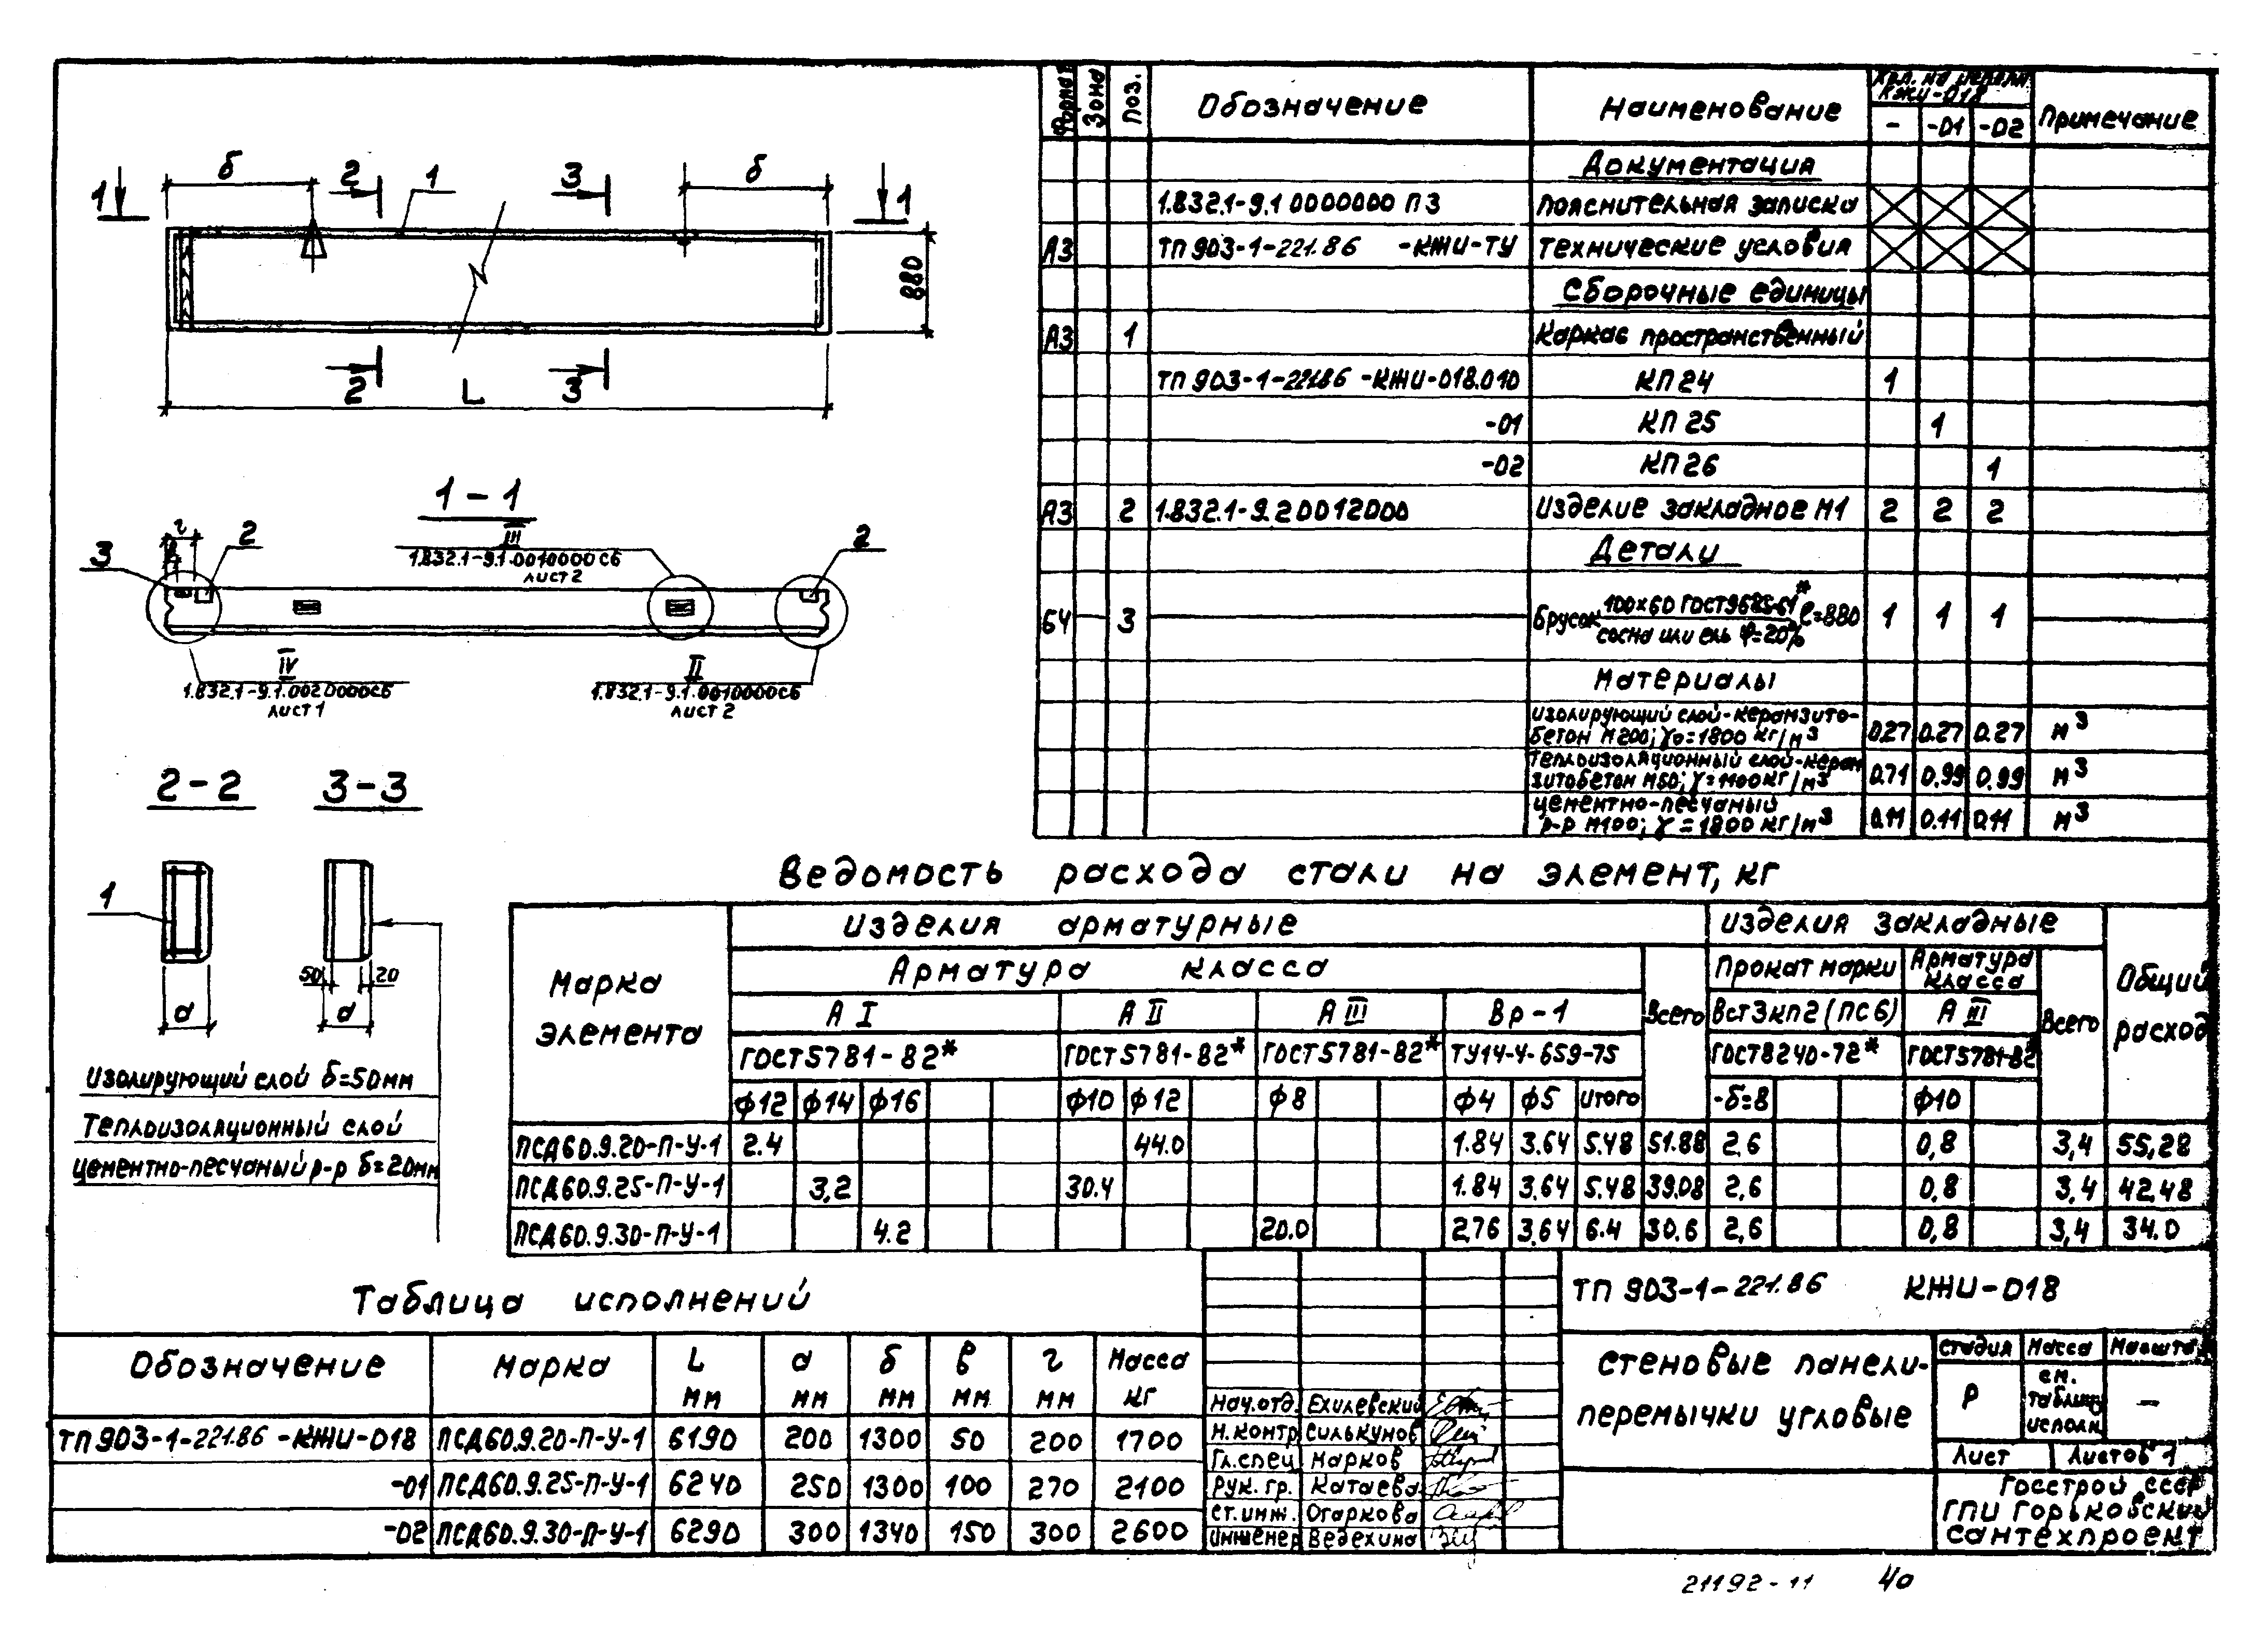 б 2 1 3 б
1 1
880
2 L 3
1-1
г 2 III 2
3 1.832.1-9.1.0010000СБ
лист 2
IV II
1.832.1-9.1.0020000СБ 1.832.1-9.1.0010000СБ
лист 1 лист 2
2-2 3-3
1
50 20
а а
Изолирующий слой δ=50мм
Теплоизоляционный слой
цементно-песчаный р-р δ=20мм
Формат Зона Поз. Обозначение Наименование Кол. на исполн. КЖИ-018 Примечание
- -01 -02
Документация
1.832.1-9.1 0000000 ПЗ Пояснительная записка
А3 ТП 903-1-221.86 -КЖИ-ТУ Технические условия
Сборочные единицы
А3 1 Каркас пространственный
ТП 903-1-221.86 -КЖИ-018.010 КП 24 1
-01 КП 25 1
-02 КП 26 1
А3 2 1.832.1-9.2 0012000 Изделие закладное М1 2 2 2
Детали
БЧ 3 Брусок 100х60 ГОСТ 9685-61* ℓ=880 1 1 1
сосна или ель φ=20%
Материалы
Изолирующий слой-керамзито-
бетон М200; γо=1800 кг/м³ 0.27 0.27 0.27 м³
Теплоизоляционный слой-керам
зитобетон М50; γ=1100кг/м³ 0.71 0.99 0.99 м³
цементно-песчаный
р-р М100; γ=1800 кг/м³ 0.11 0.11 0.11 м³
Ведомость расхода стали на элемент, кг
Марка элемента Изделия арматурные Изделия закладные Общий расход
Арматура класса Всего Прокат марки Арматура класса Всего
А I А II А III Вр-1 Вст3кп2 (ПС6) А III
ГОСТ5781-82* ГОСТ5781-82* ГОСТ5781-82* ТУ14-4-659-75 ГОСТ8240-72* ГОСТ5781-82*
ф12 ф14 ф16 ф10 ф12 ф8 ф4 ф5 Итого -δ=8 ф10
ПСД60.9.20-П-У-1 2.4 44.0 1.84 3.64 5.48 51.88 2,6 0,8 3,4 55,28
ПСД60.9.25-П-У-1 3,2 30.4 1.84 3.64 5.48 39.08 2,6 0,8 3,4 42.48
ПСД60.9.30-П-У-1 4.2 20.0 2,76 3.64 6.4 30.6 2,6 0,8 3,4 34.0
Таблица исполнений
Обозначение Марка L мм а мм б мм в мм г мм Масса кг
ТП 903-1-221.86 -КЖИ-018 ПСД60.9.20-П-У-1 6190 200 1300 50 200 1700
-01 ПСД60.9.25-П-У-1 6240 250 1300 100 270 2100
-02 ПСД60.9.30-П-У-1 6290 300 1340 150 300 2600
Нач.отд. Ехилевский
Н.контр Силькунов
Гл.спец Марков
Рук. гр. Катаева
Ст.инж. Огаркова
Инженер Ведехина
ТП 903-1-221.86 КЖИ-018
Стеновые панели-
перемычки угловые
Стадия Масса Масштаб
Р см. таблицу исполн. —
Лист Листов 1
Госстрой СССР
ГПИ Горьковский
Сантехпроект
21192-11 40